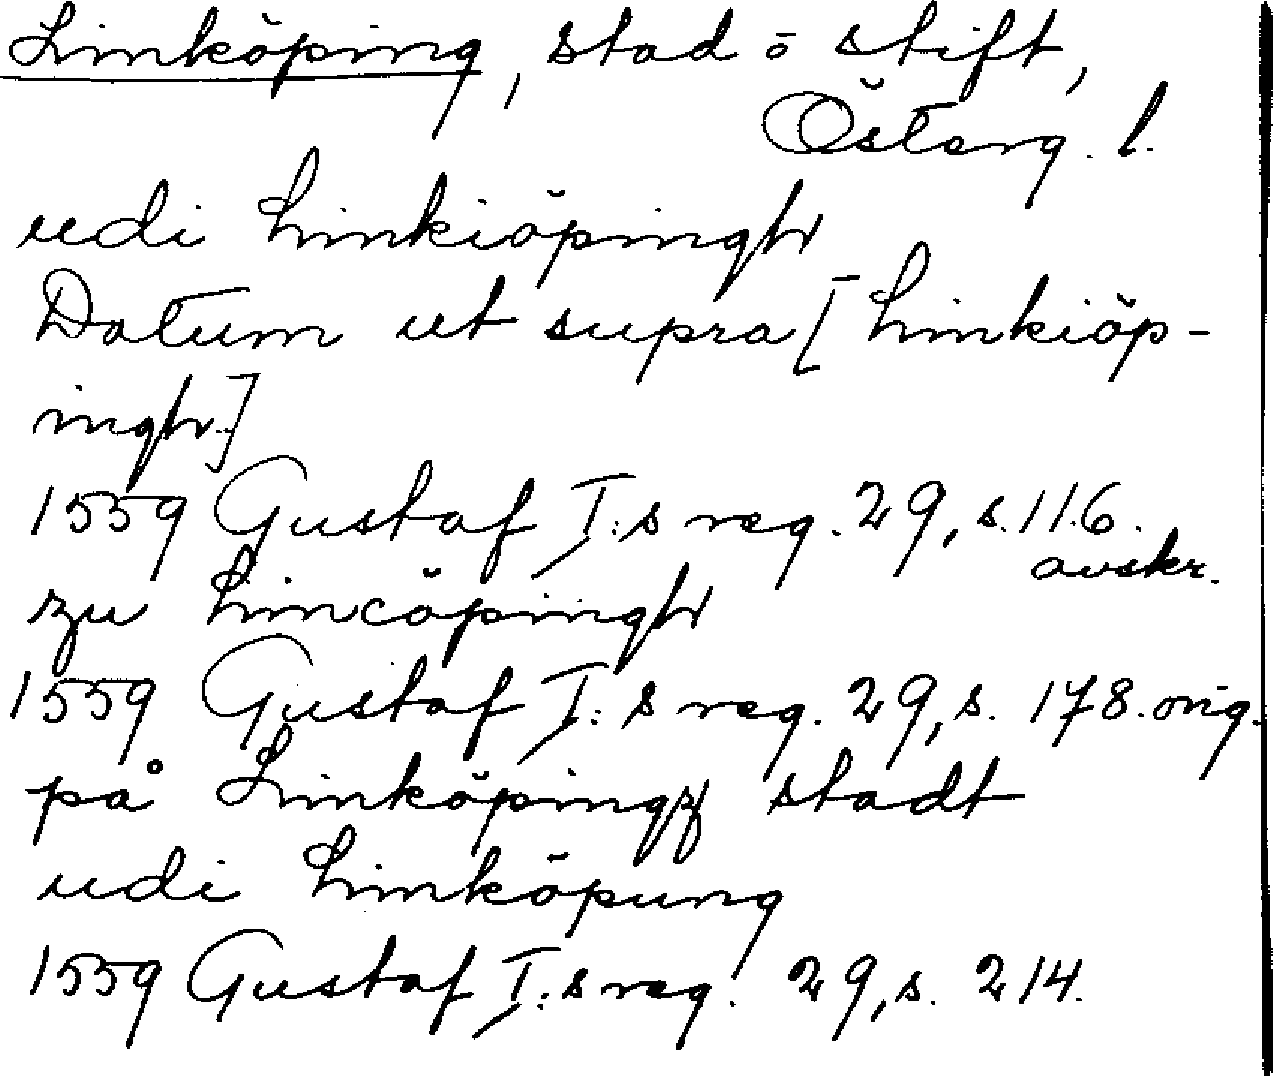 Linköping, stad o stift,
Österg. l.
udi Linkiöpingh
Datum ut supra [Linkiöp-
ingh]
1559 Gustaf I:s reg. 29, s. 116.
avskr.
zu Lincöpingh
1559 Gustaf I:s reg. 29, s. 178. orig.
på Linköpingz stadt
udi Linköpung
1559 Gustaf I:s reg. 29, s. 214.